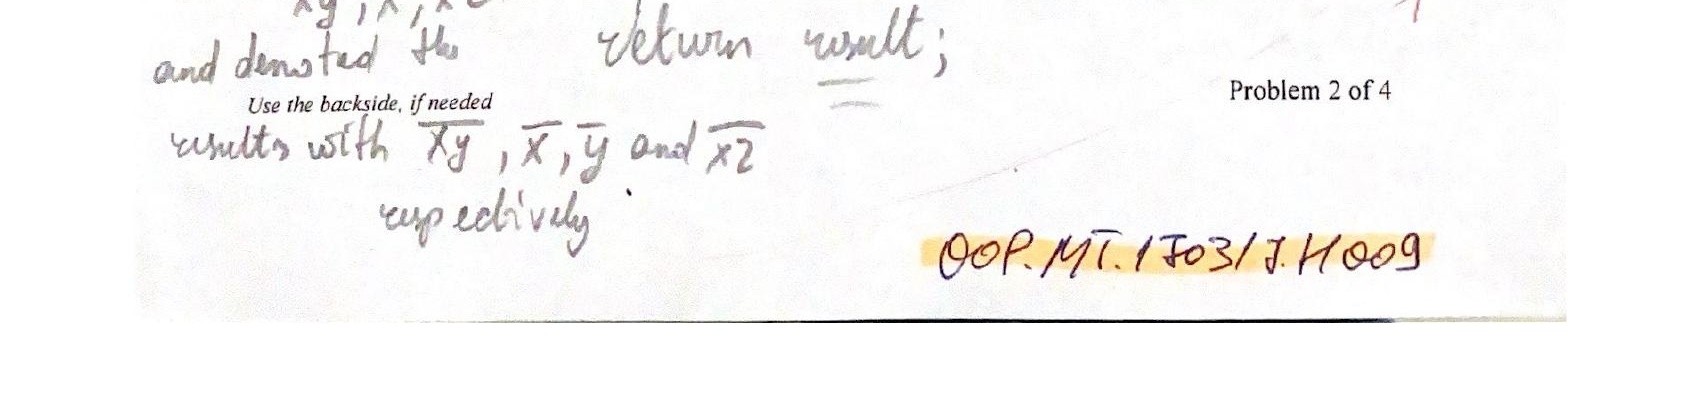 and denoted the
return result;
Use the backside, if needed
Problem 2 of 4
results with x̅y̅, x̅, y̅ and x̅2̅
respectively
OOP.MT.1703/J.H009